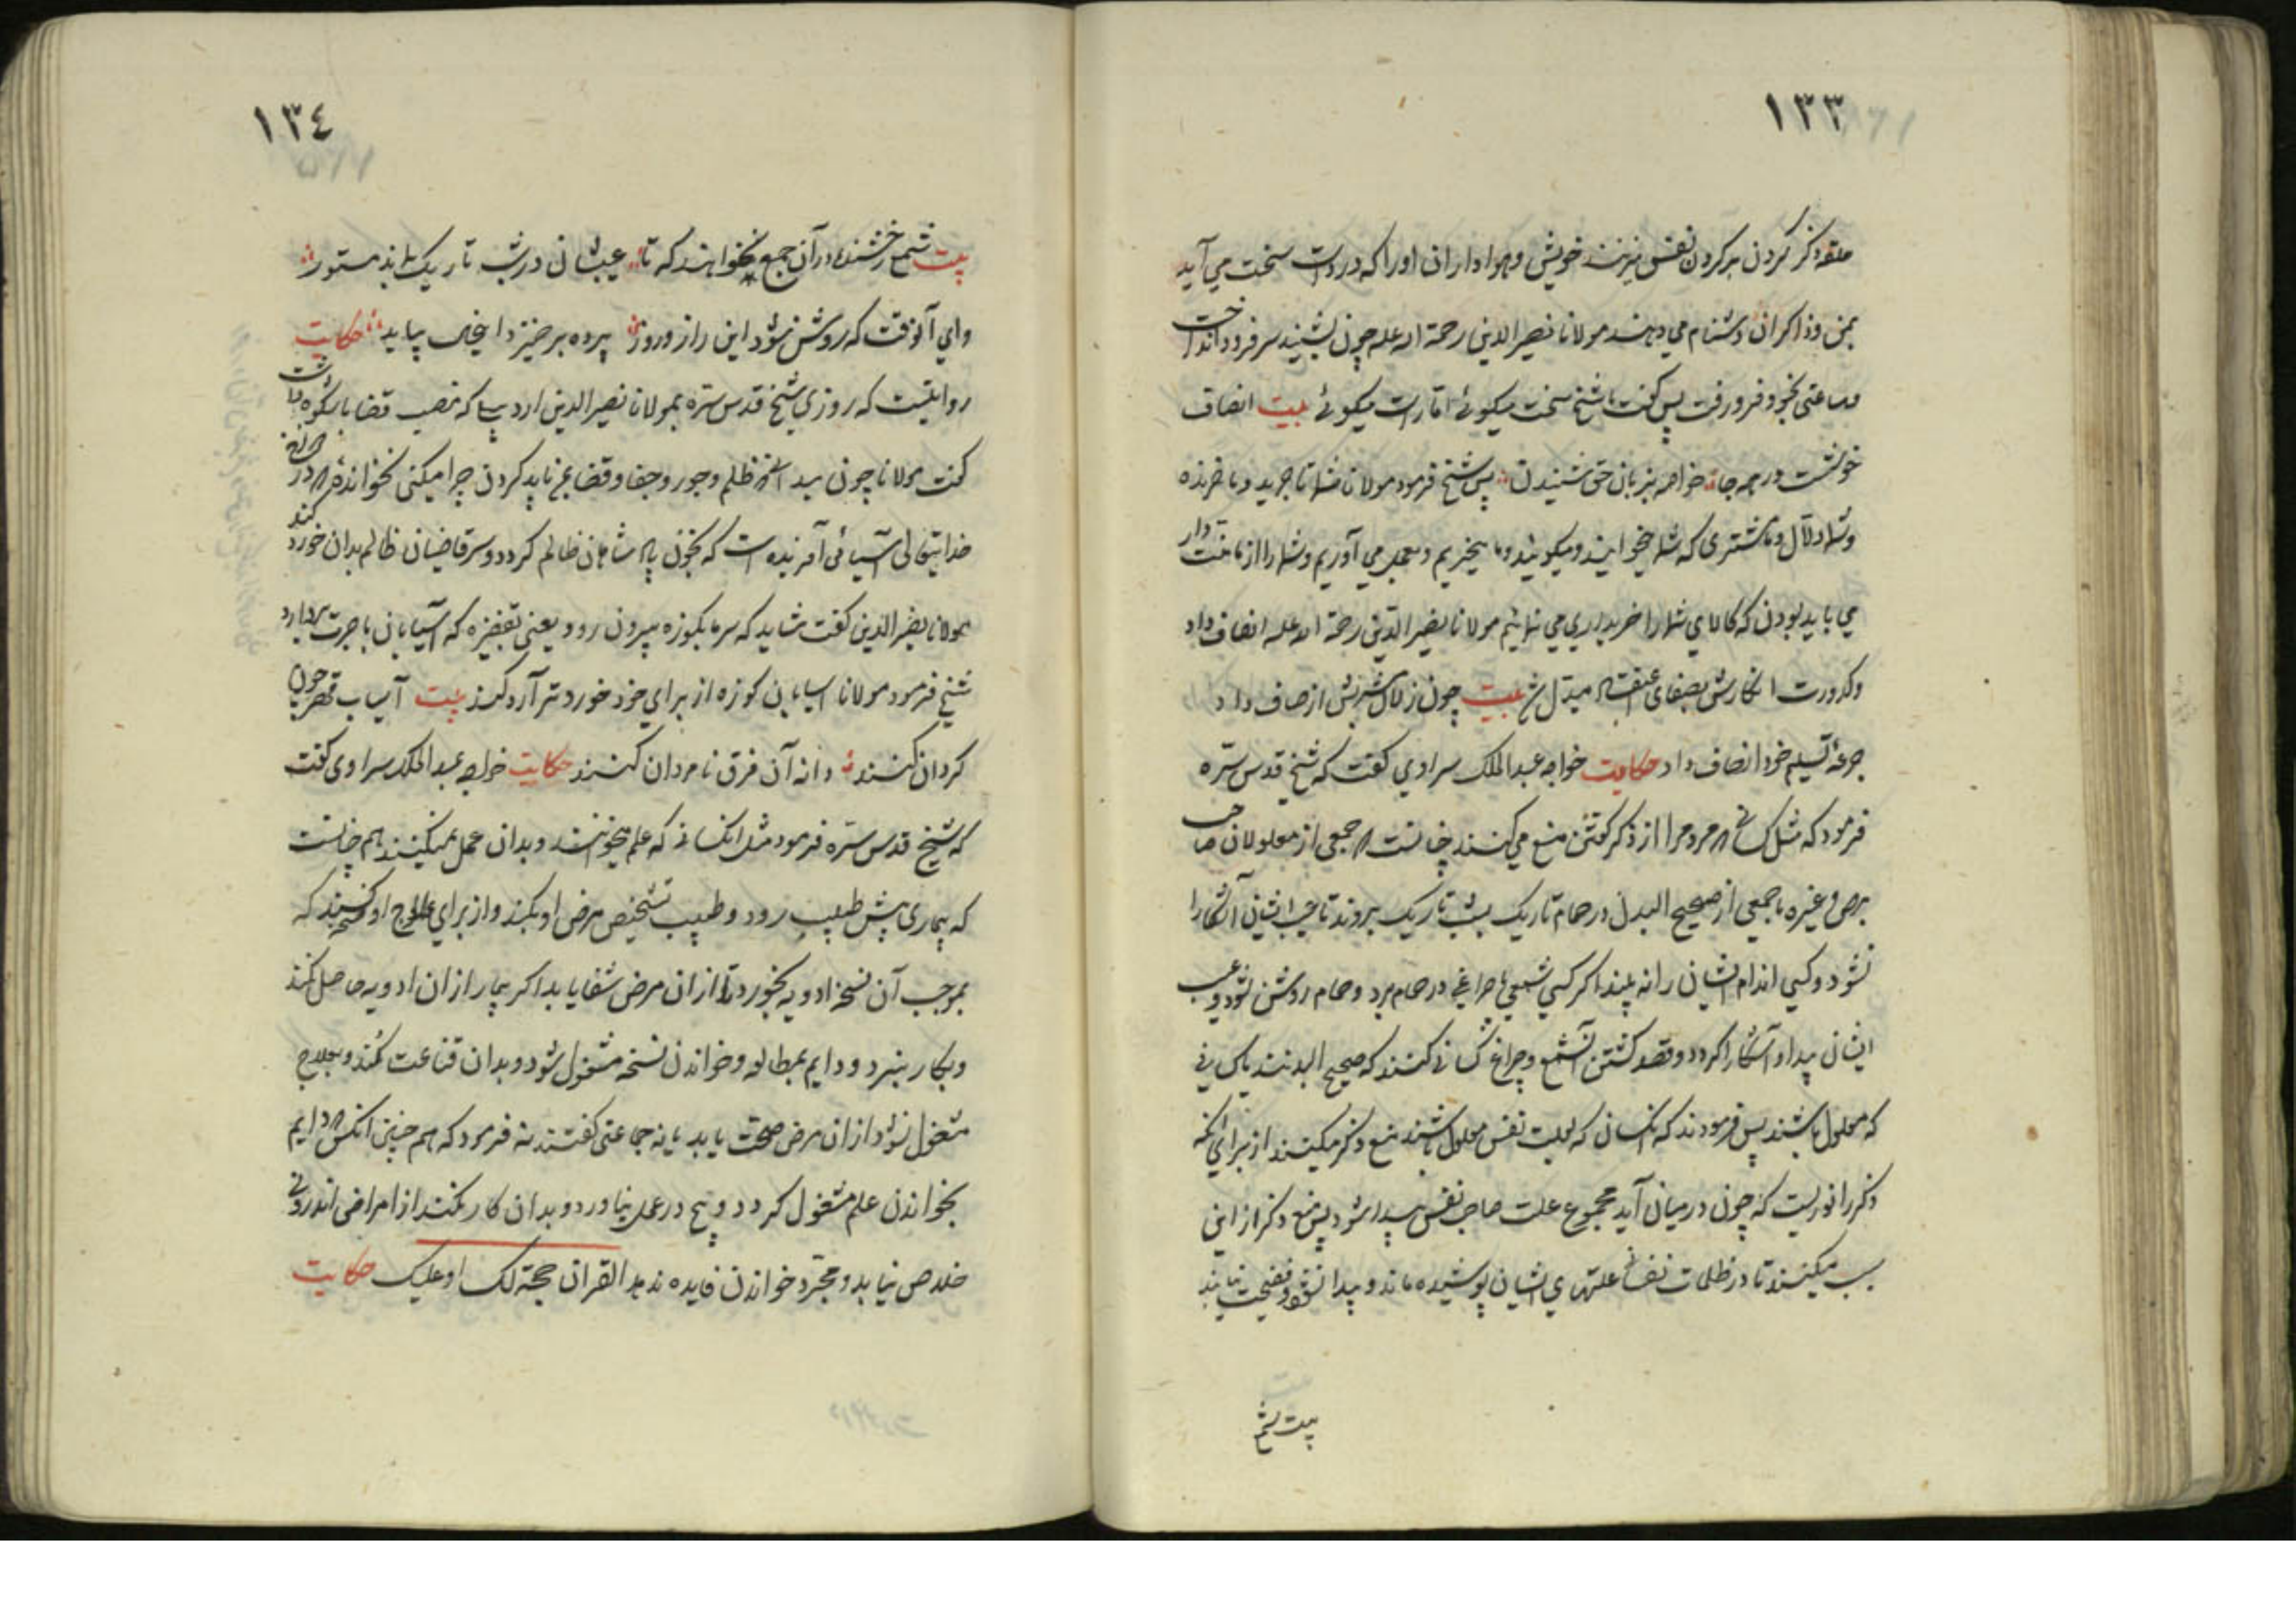 ١٣٣
حلقه ذکر کردن بر کردن نفس میزنند خویش و هواداران او را که در دست سخت می آید
بمن و ذاکران دشنام می دهند مولانا نصیر الدین رحمة الله علیه چون بشنید سر فرود انداخت
و ساعتی بخود فرو رفت پس کفت شیخ سخت میکوئی اما راست میکوئی بیت انصاف
خوشست در همه جا خواهم بزبان حق شنیدن پس شیخ فرمود مولانا شما تاجرید و ما خرنده
و شما دلال و ما مشتری که شما میخوانید و میکوئید و ما میخریم و بعمل می آوریم و شما را از ما منت دار
می باید بودن که کالای شما را خریداری می نمائیم مولانا نصیر الدین رحمة الله علیه انصاف داد
و کدورت انکارش بصفای مبدل شد بیت چون زلال شربش از صاف داد
جرعهٔ تسلیم خود انصاف داد حکایت خواجه عبد الملک سراوی کفت که شیخ قدس سره
فرمود که مثل کسانی که مردم را از ذکر کفتن منع می کنند چنانست که جمعی از معلولان صاحب
برص و غیره با جمعی از صحیح البدن در حمام تاریک بشب تاریک بروند تا عیب ایشان آشکارا
نشود و کسی اندام ایشان را نه بیند اکر کسی شمعی یا چراغی در حمام برد و حمام روشن شود و عیب
ایشان پیدا و آشکارا کردد و قصد کشتن آن شمع و چراغ کسانی کنند که صحیح البدنند یا کسانی
که معلول باشند پس فرمودند که آنکسان که بعلت نفس معلول باشند منع ذکر میکنند از برای آنکه
ذکر را نوریست که چون در میان آید مجموع علت صاحب نفس پیدا شود پس منع ذکر از این
سبب میکنند تا در ظلمات نفسانی علتهای ایشان پوشیده ماند و پیدا نشود و فضیحت نیابند
بیت شمع
١٣٤
بیت شمع رخشنده در آن جمع نخواهند که تا عیبشان در شب تاریک بماند مستور
وای آنوقت که روشن شود این راز و روز پرده برخیزد ا پیاید حکایت
روایتست که روزی شیخ قدس سره بمولانا نصیر الدین اردبیلی که منصب قضا با شکوه داشت
کفت مولانا چون میدانی که ظلم و جور و جفا و قضا نباید کردن چرا میکنی نخوانده که در
خدایتعالی آسیائی آفریده است که بخون پادشاهان ظالم کردد و سر قاضیان ظالم بدان خورد کند
مولانا نصیر الدین کفت شاید که سر ما بکوزه بیرون رود یعنی بقفیزه که آسیابان باجرت بردارد
شیخ فرمود مولانا اسیابان کوزه از برای خود خوردتر آرد کند بیت آسیاب قهر چون
کردان کنند دانه آن فرق نامردان کنند حکایت خواجه عبد الملک سراوی کفت
که شیخ قدس سره فرمود مثل آنکسانی که علم میخوانند و بدان عمل نمیکنند هم چنانست
که بیماری پیش طبیب رود و طبیب تشخیص مرض او بکند و از برای علاج او نسخه کند که
بموجب آن نسخه ادویه بخورد تا از آن مرض شفا یابد اکر بیمار از آن ادویه حاصل نکند
و بکار نبرد و دایم بمطالعه و خواندن نسخه مشغول شود و بدان قناعت کند و بعلاج
مشغول نشود از آن مرض صحت یابد یا نه جماعتی کفتند نه فرمود که هم چنین آنکس که دایم
بخواندن علم مشغول کردد و هیچ در عمل نیاورد و بدان کار نکند از امراض اندرونی
خلاص نیابد و مجرد خواندن فایده ندهد القران حجة لک او علیک حکایت